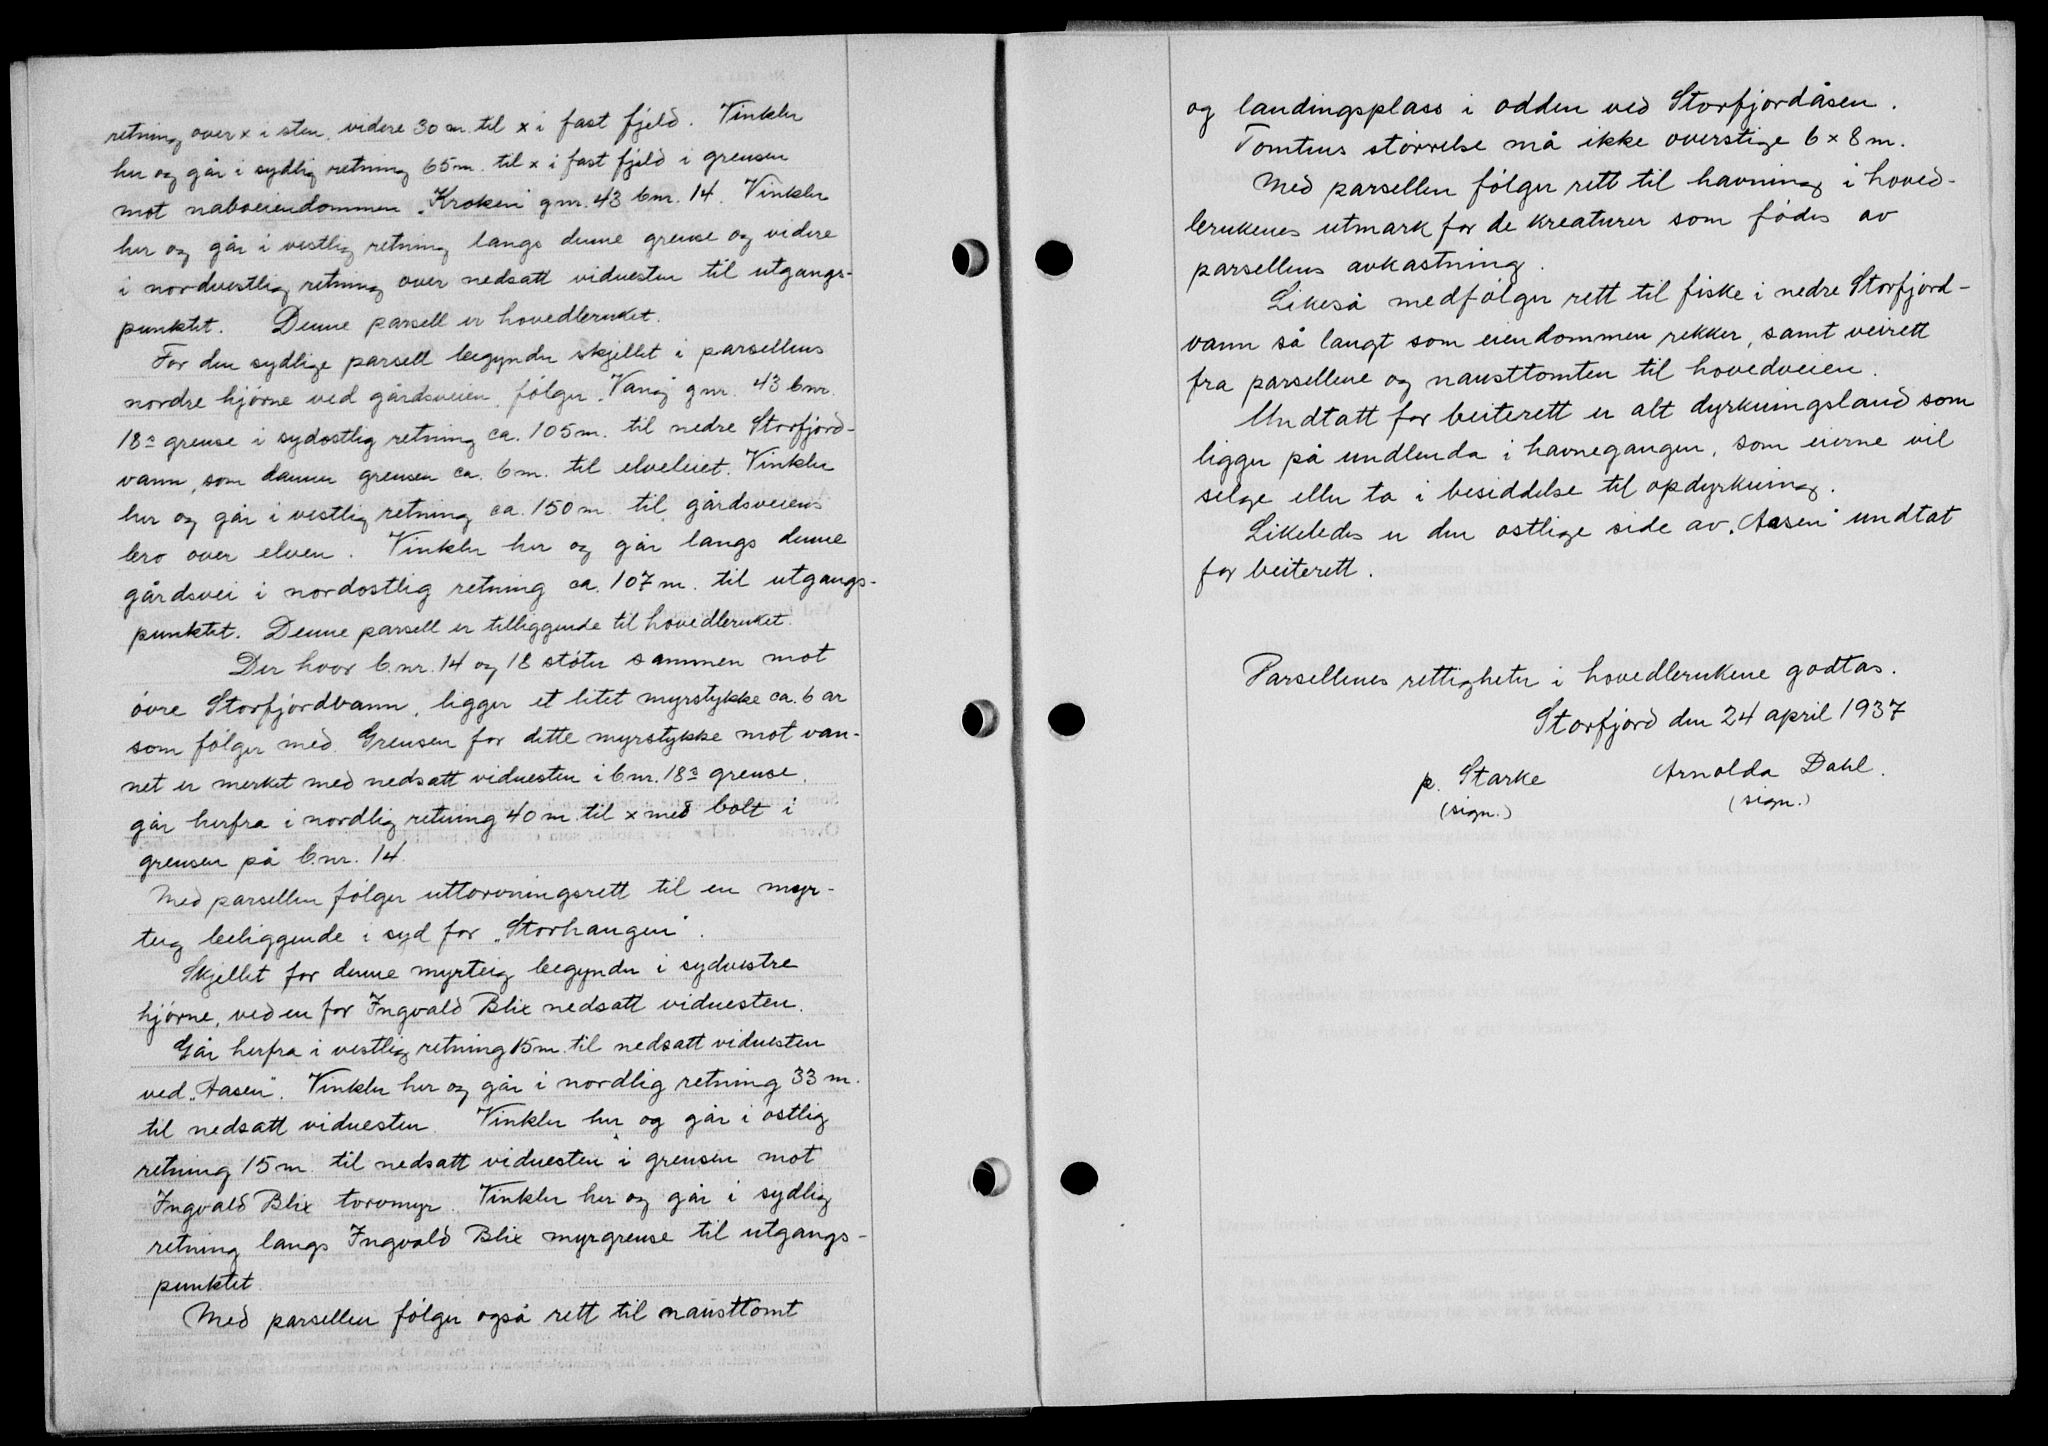 retning over x i sten, videre 30 m. til x i fast fjeld. Vinkler
her og går i sydlig retning 65 m. til x i fast fjeld i grensen
mot naboeiendommen „Kroken" gnr. 43 bnr. 14. Vinkler
her og går i vestlig retning langs denne grense og videre
i nordvestlig retning over nedsatt vidnesten til utgangs-
punktet. Denne parsell er hovedbruket.
For den sydlige parsell begynder skjellet i parsellens
nordre hjørne ved gårdsveien, følger „Vang" gnr. 43 bnr.
18s grense i sydostlig retning ca. 105 m. til nedre Storfjord-
vann, som danner grensen ca. 6 m. til elveleiet. Vinkler
her og går i vestlig retning ca. 150 m. til gårdsveiens
bro over elven. Vinkler her og går langs denne
gårdsvei i nordostlig retning ca. 107 m. til utgangs-
punktet. Denne parsell er tilliggende til hovedbruket.
Der hvor b.nr. 14 og 18 støter sammen mot
øvre Storfjordvann, ligger et litet myrstykke ca. 6 ar
som følger med. Grensen for dette myrstykke mot van-
net er merket med nedsatt vidnesten i b.nr. 18s grense,
går herfra i nordlig retning 40 m. til x med bolt i
grensen på b.nr. 14.
Med parsellen følger uttorvningsrett til en myr-
teig beliggende i syd for „Storhaugen".
Skjellet for denne myrteig begynder i sydvestre
hjørne, ved en for Ingvald Blix nedsatt vidnesten.
Går herfra i vestlig retning 15 m. til nedsatt vidnesten
ved „Aasen". Vinkler her og går i nordlig retning 33 m.
til nedsatt vidnesten. Vinkler her og går i ostlig
retning 15 m. til nedsatt vidnesten i grensen mot
Ingvald Blix torvmyr. Vinkler her og går i sydlig
retning langs Ingvald Blix myrgrense til utgangs-
punktet.
Med parsellen følger også rett til nausttomt
og landingsplass i odden ved Storfjordåsen.
Tomtens størrelse må ikke overstige 6 x 8 m.
Med parsellen følger rett til havning i hoved-
brukenes utmark for de kreaturer som fødes av
parsellens avkastning.
Likeså medfølger rett til fiske i nedre Storfjord-
vann så langt som eiendommen rekker, samt veirett
fra parsellene og nausttomten til hovedveien.
Undtatt for beiterett er alt dyrkningsland som
ligger på undlenda i havnegangen, som eierne vil
selge eller ta i besiddelse til opdyrkning.
Likeledes er den ostlige side av „Aasen" undtat
for beiterett.
Parsellenes rettigheter i hovedbrukene godtas.
Storfjord den 24 april 1937
p. Starke Arnolda Dahl.
(sign.) (sign.)